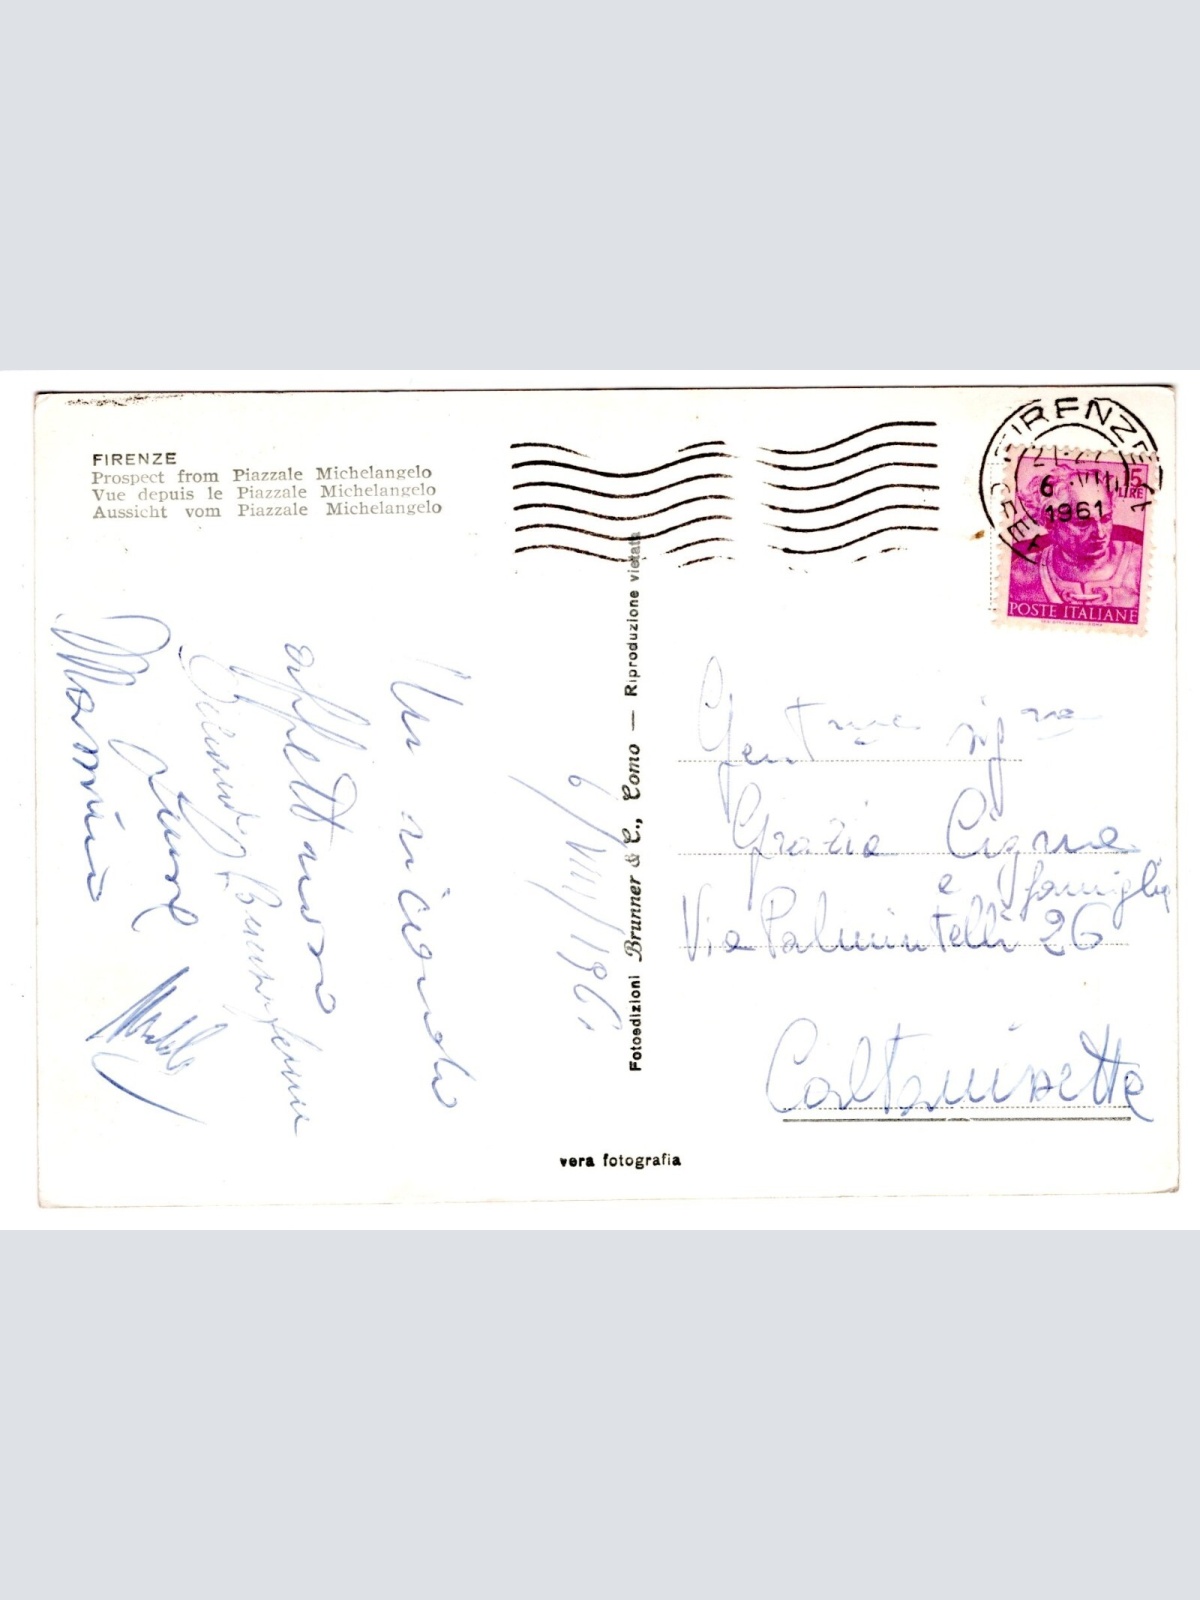 FIRENZE
Prospect from Piazzale Michelangelo
Vue depuis le Piazzale Michelangelo
Aussicht vom Piazzale Michelangelo
FIRENZE
21-22
6 VIII
1961
15
LIRE
POSTE ITALIANE
6/VIII/1961
Un ricordo
affettuoso
Fotoedizioni Brunner & C., Como — Riproduzione vietata
Gent.ma sig.ra
Grazia Cigna
e famiglia
Via Palmintelli 26
Caltanissetta
vera fotografia